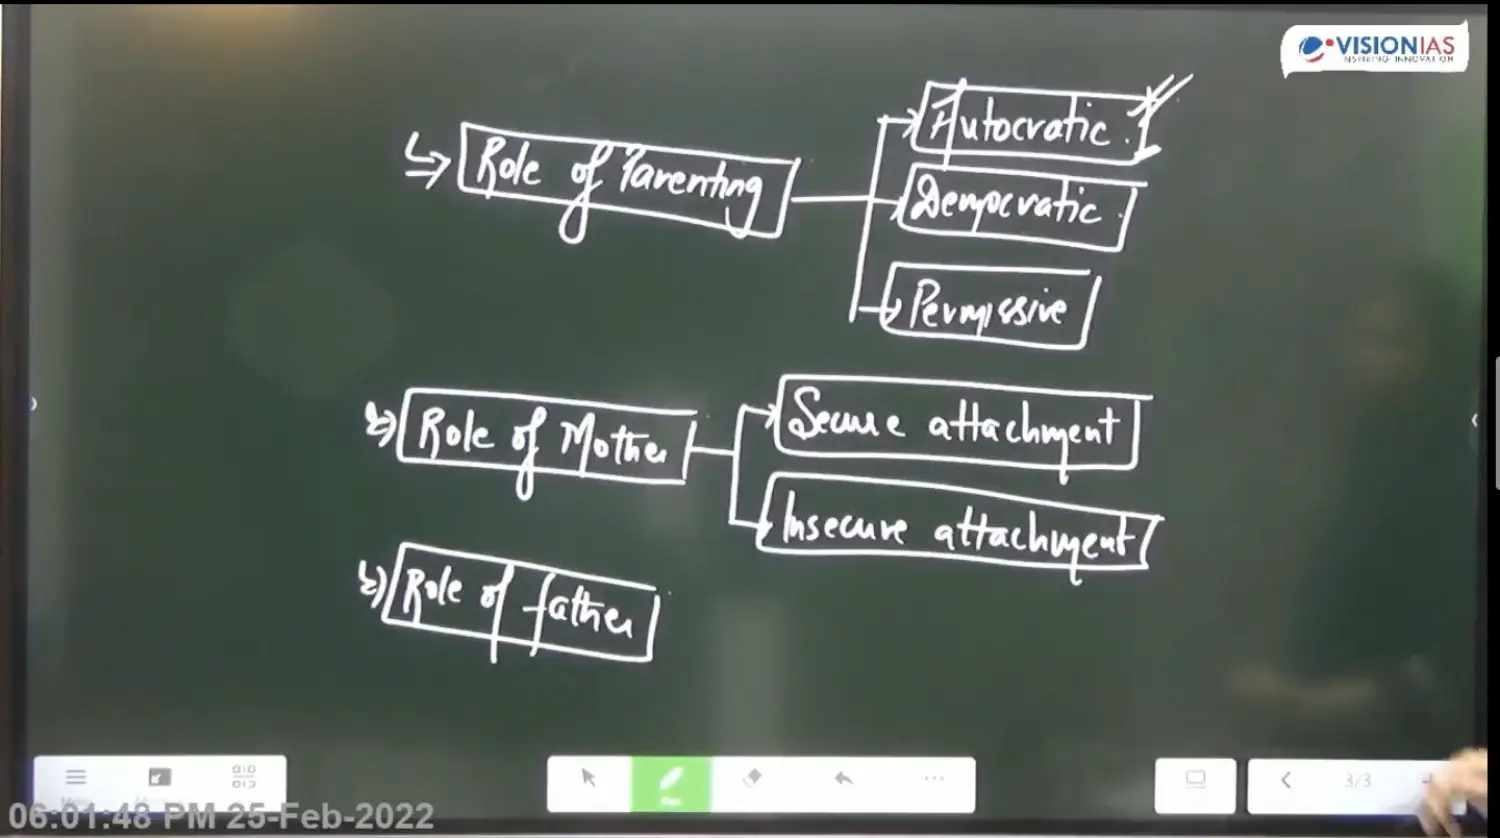 VISIONIAS
INSPIRING INNOVATION
Autocratic
Role of Parenting
Democratic
Permissive
Role of Mother
Secure attachment
Insecure attachment
Role of father
3/3
06:01:48 PM 25-Feb-2022